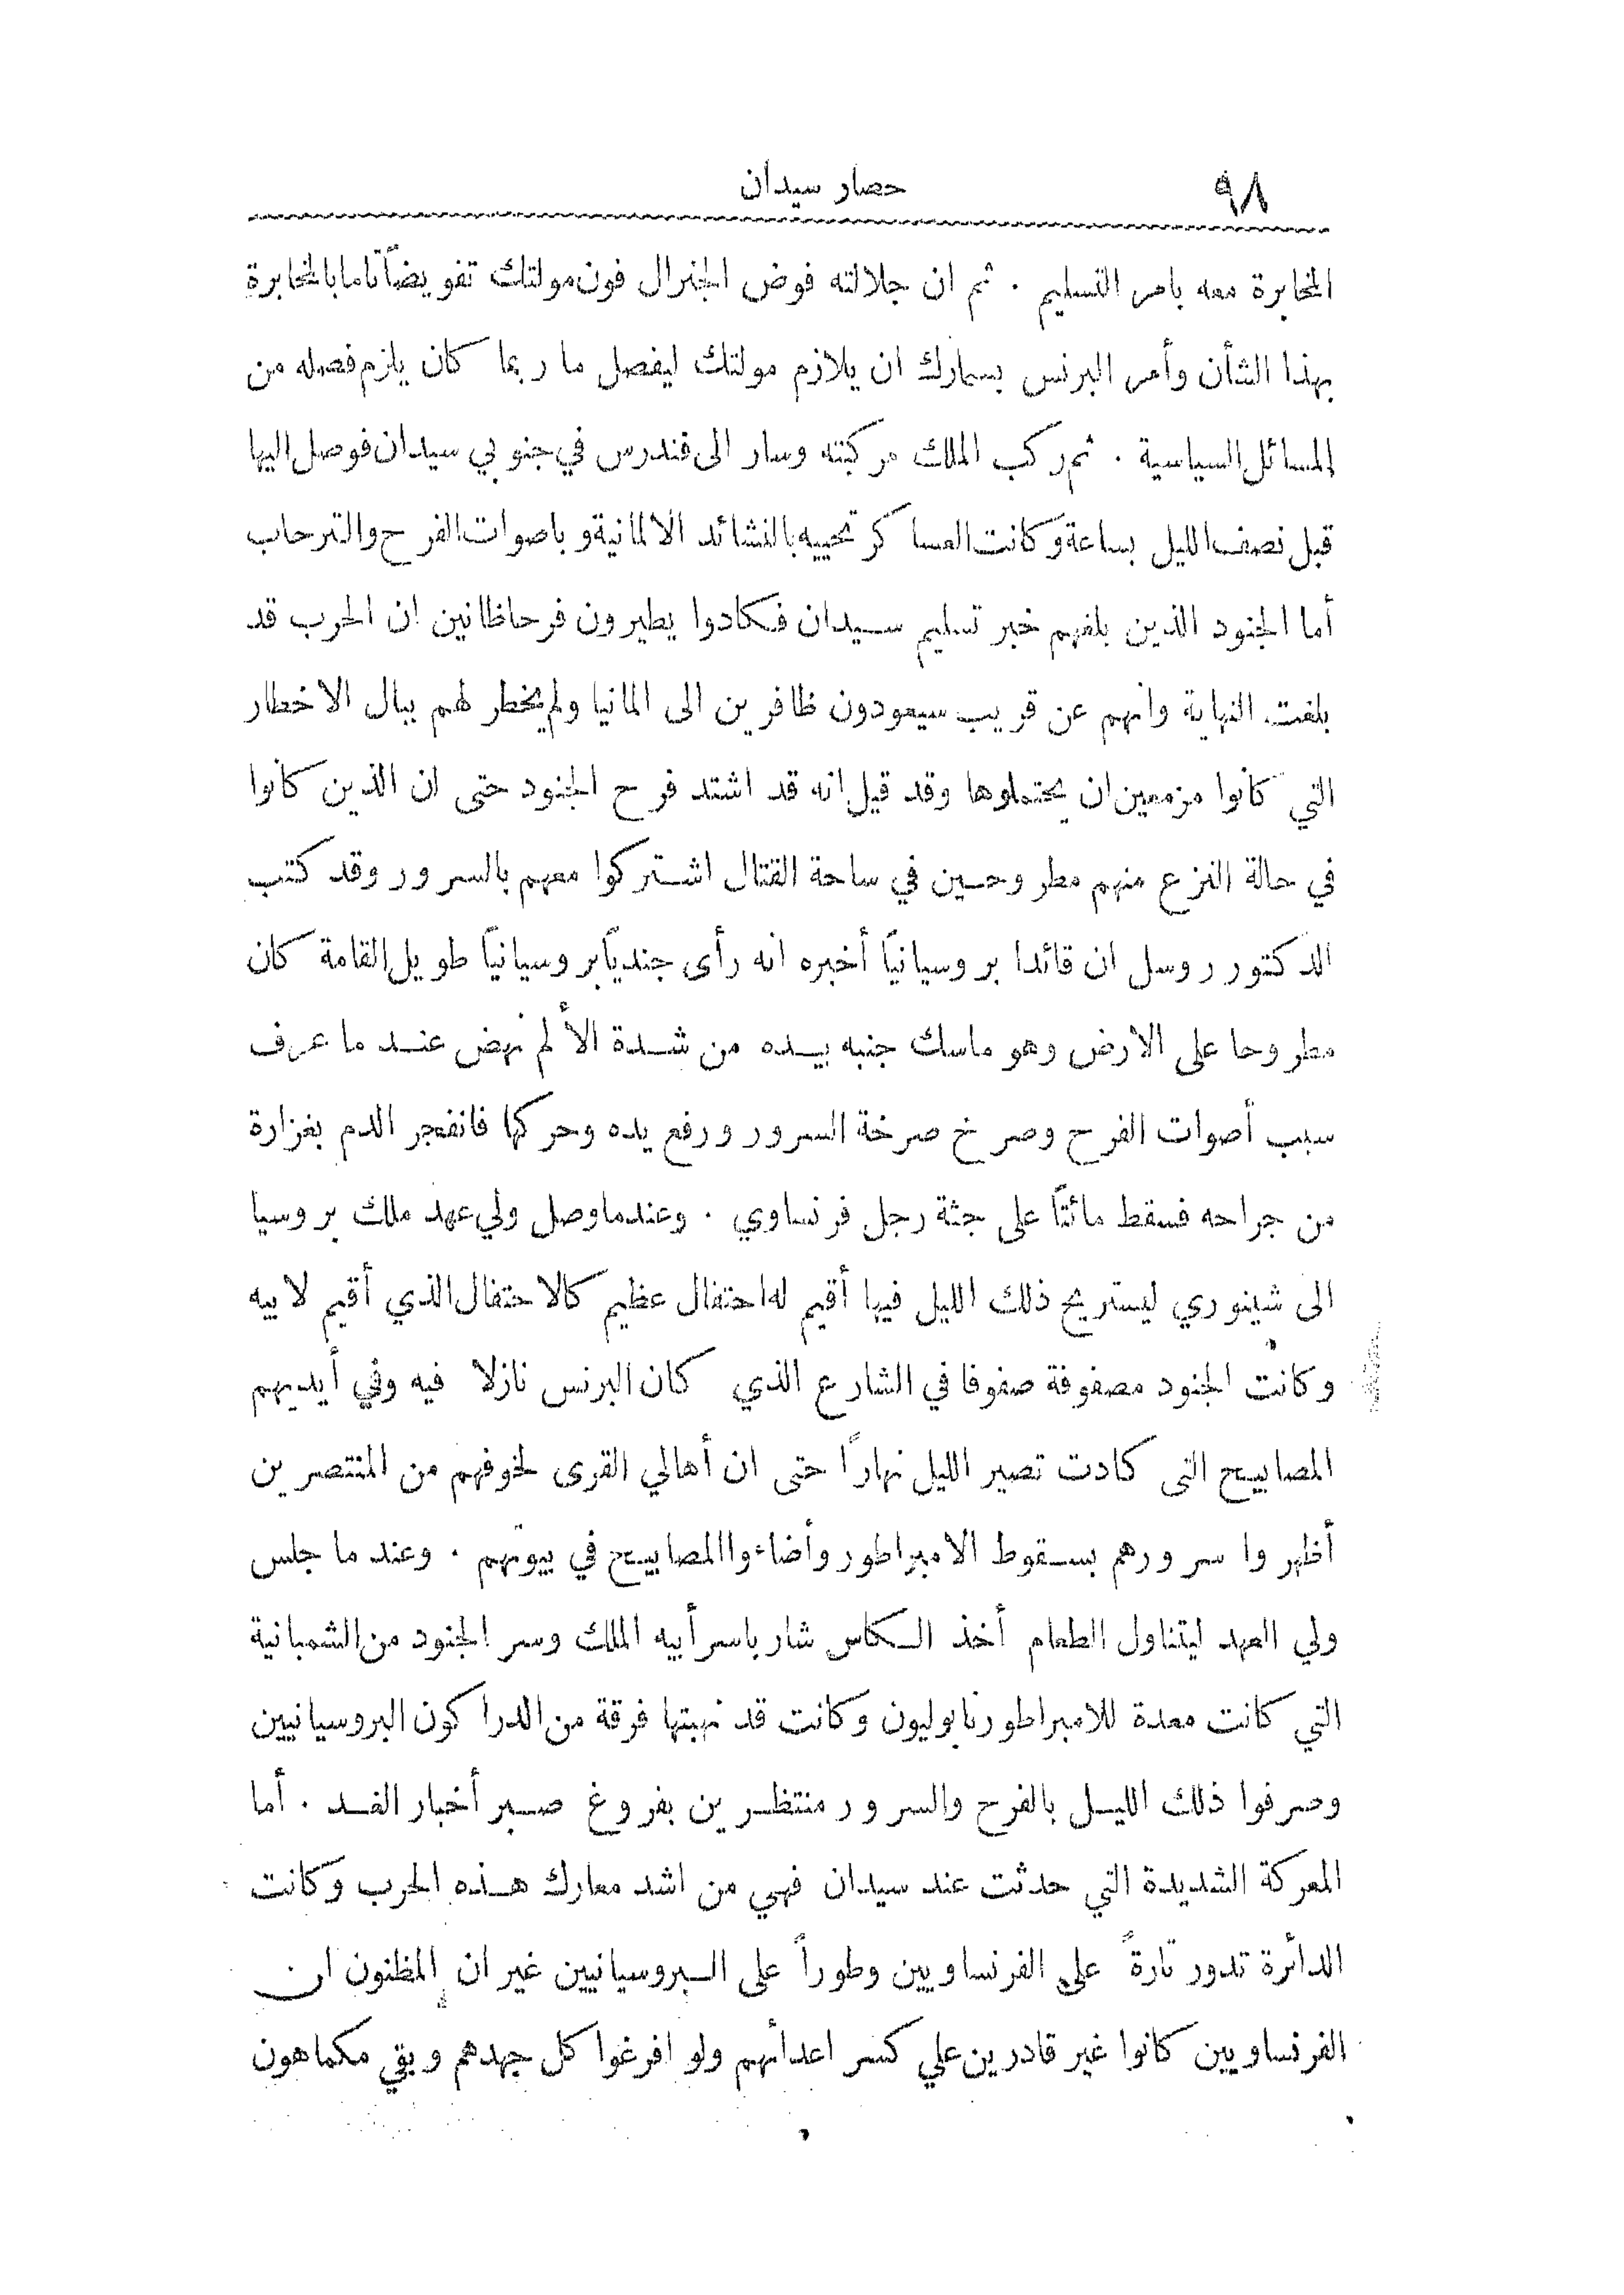 ٩٨ حصار سيدان
المخابرة معه بامر التسليم . ثم ان جلالته فوض الجنرال فون مولتك تفويضاً تاما بالمخابرة
بهذا الشأن وأمر البرنس بسمارك ان يلازم مولتك ليفصل ما ربما كان يلزم فصله من
المسائل السياسية . ثم ركب الملك مركبته وسار الى فندرس في جنوبي سيدان فوصل اليها
قبل نصف الليل بساعة وكانت العساكر تحييه بالنشائد الالمانية وباصوات الفرح والترحاب
أما الجنود الذين بلغهم خبر تسليم سيدان فكادوا يطيرون فرحا ظانين ان الحرب قد
بلغت النهاية وانهم عن قريب سيعودون ظافرين الى المانيا ولم يخطر لهم ببال الاخطار
التي كانوا مزمعين ان يحتملوها وقد قيل انه قد اشتد فرح الجنود حتى ان الذين كانوا
في حالة النزع منهم مطروحين في ساحة القتال اشتركوا معهم بالسرور وقد كتب
الدكتور روسل ان قائدا بروسيانياً أخبره انه رأى جندياً بروسيانياً طويل القامة كان
مطروحا على الارض وهو ماسك جنبه بيده من شدة الألم نهض عند ما عرف
سبب أصوات الفرح وصرخ صرخة السرور ورفع يده وحركها فانفجر الدم بغزارة
من جراحه فسقط مائتاً على جثة رجل فرنساوي . وعندما وصل ولي عهد ملك بروسيا
الى شينوري ليستريح ذلك الليل فيها أقيم له احتفال عظيم كالاحتفال الذي أقيم لابيه
وكانت الجنود مصفوفة صفوفا في الشارع الذي كان البرنس نازلا فيه وفي أيديهم
المصابيح التى كادت تصير الليل نهاراً حتى ان أهالي القرى لخوفهم من المنتصرين
أظهروا سرورهم بسقوط الامبراطور وأضاءوا المصابيح في بيوتهم . وعند ما جلس
ولي العهد ليتناول الطعام أخذ الكاس شار باسر أبيه الملك وسر الجنود من الشمبانية
التي كانت معدة للامبراطور نابوليون وكانت قد نهبتها فرقة من الدراكون البروسيانيين
وصرفوا ذلك الليل بالفرح والسرور منتظرين بفروغ صبر أخبار الغد . أما
المعركة الشديدة التي حدثت عند سيدان فهي من اشد معارك هذه الحرب وكانت
الدائرة تدور تارةً على الفرنساويين وطوراً على البروسيانيين غير ان المظنون ان
الفرنساويين كانوا غير قادرين علي كسر اعدائهم ولو افرغوا كل جهدهم وبقي مكماهون